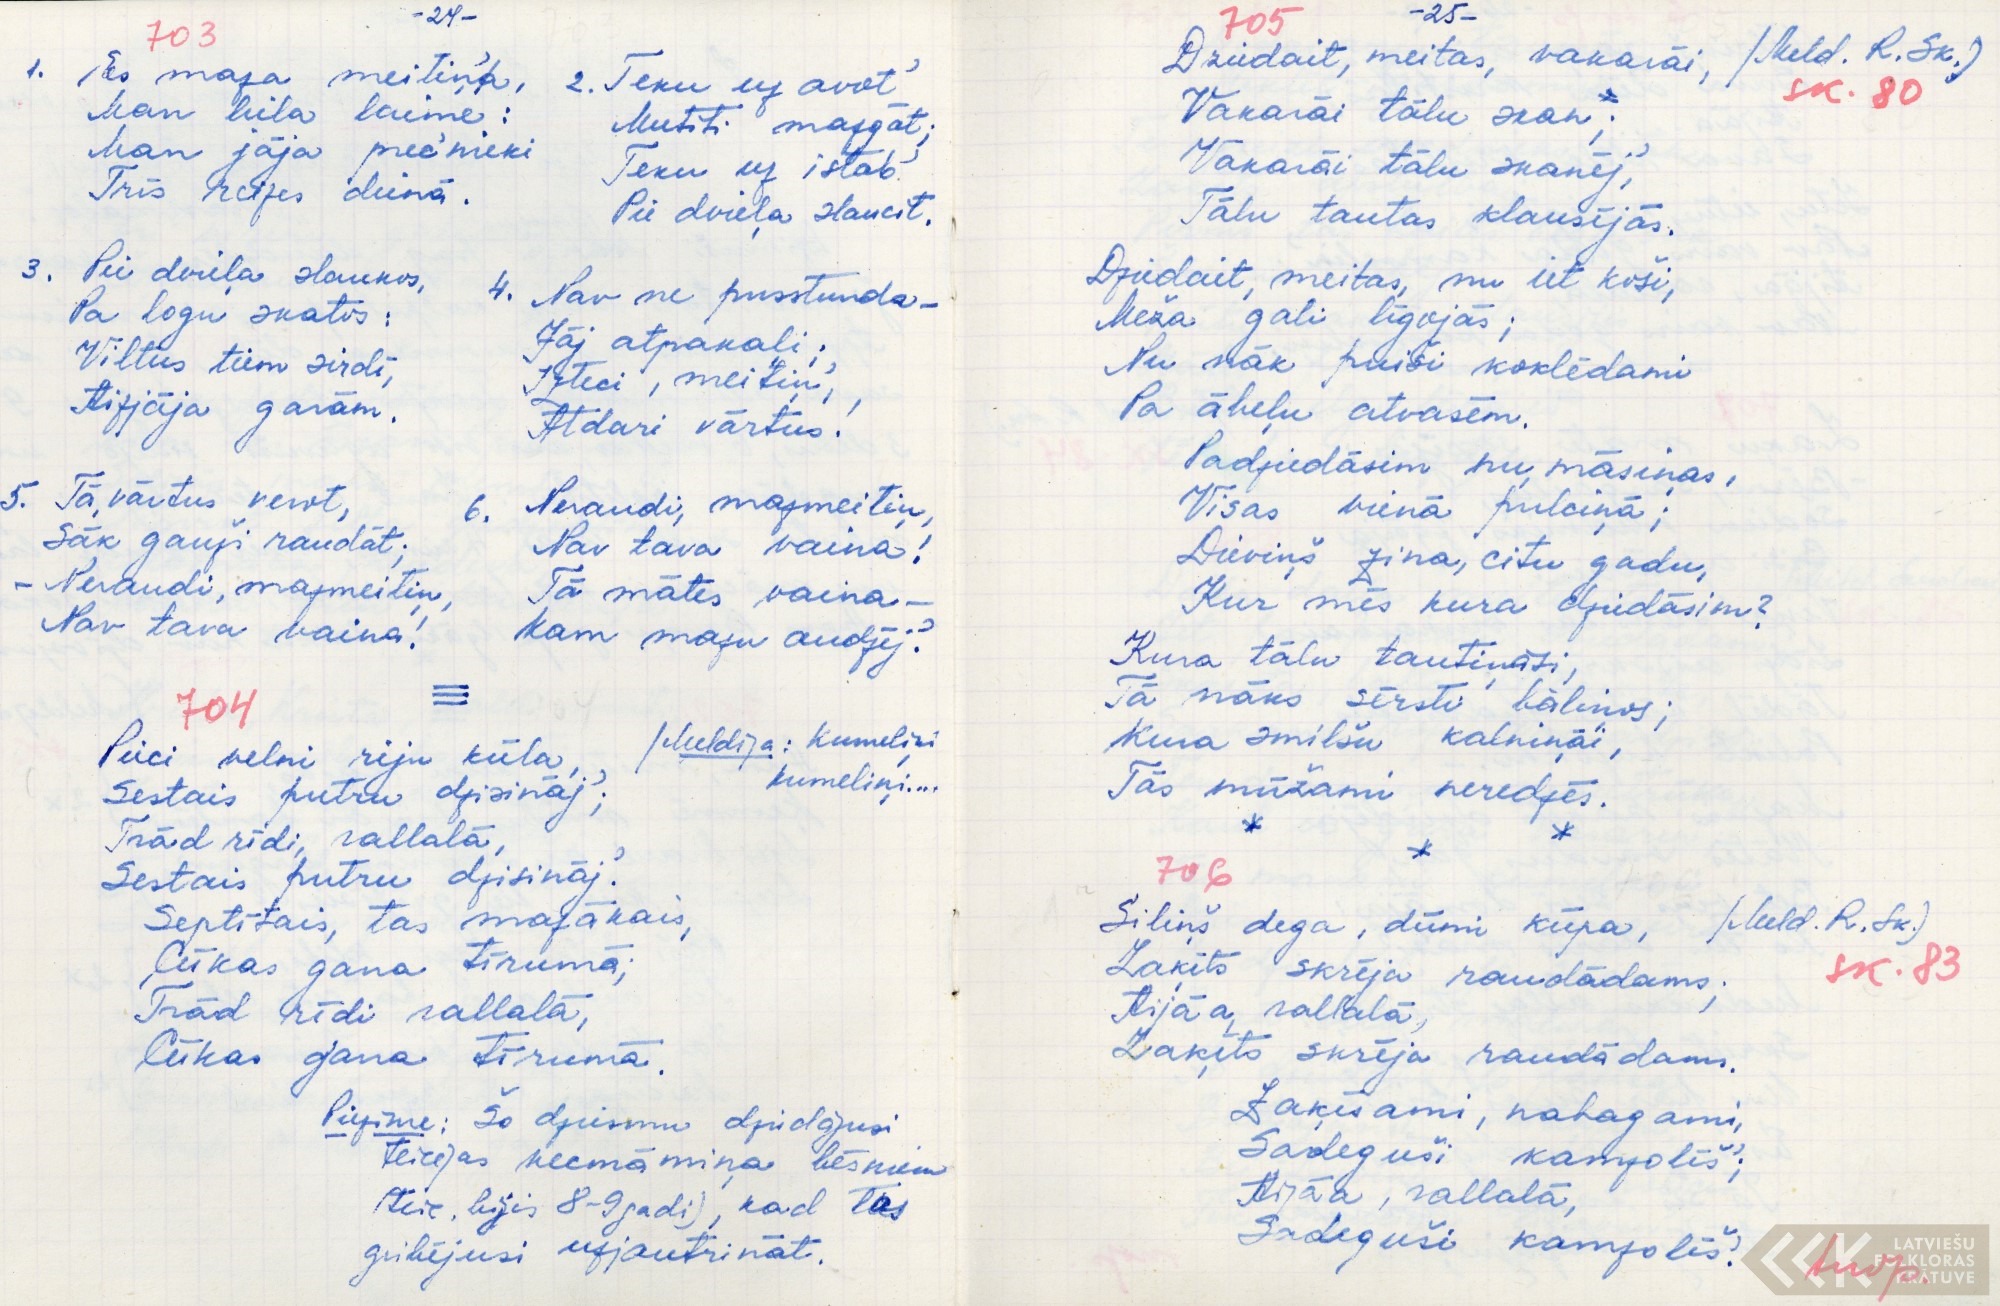 -24-
703
1. Es maza meitiņ',
Man liela laime:
Man jāja precinieki
Trīs reizes dienā.
2. Teku uz avot'
Mutīti mazgāt;
Teku uz istab'
Pie dvieļa slaucīt.
3. Pie dvieļa slaukos,
Pa logu skatos:
Viltus tiem sirdī,
Aizjāja garām.
4. Nav ne pusstunda–
Jāj atpakaļi;
Izteci, meitiņ',
Atdari vārtus!
5. Tā, vārtus verot,
Sāk gauži raudāt;
– Neraudi, mazmeitiņ,
Nav tava vaina!
6. Neraudi, mazmeitiņ,
Nav tava vaina!
Tā mātes vaina–
Kam mazu audzēj'?
704
Pieci velni riju kūla,
Sestais putru dzisināj';
Trād rīdi, rallalā,
Sestais putru dzisināj'.
Septītais, tas mazākais,
Cūkas gana tīrumā;
Trād rīdi rallalā,
Cūkas gana tīrumā.
/Meldija: Kumeliņi
kumeliņi...
Piezīme: Šo dziesmu dziedājusi
teicējas vecmāmiņa bērniem
(teic. bijis 8-9 gadi), kad tos
gribējusi uzjautrināt.
-25-
705
Dziedait, meitas, vakarāi, /Meld. R. Sk.)
SK. 80
Vakarāi tālu skan*;
Vakarāi tālu skanēj',
Tālu tautas klausījās.
Dziedait, meitas, nu iet koši,
Meža gali līgojās;
Nu nāk puiši koklēdami
Pa ābeļu atvasēm.
Padziedāsim nu, māsiņas,
Visas vienā pulciņā;
Dieviņš zina, citu gadu,
Kur mēs kura dziedāsim?
Kura tālu tautiņāsi,
Tā nāks sērsti bāliņos;
Kura smilšu kalniņāi,
Tās mūžami neredzēs.
* * *
706
Siliņš dega, dūmi kūpa, /Meld. R. Sk.)
SK. 83
Zaķīts skrēja raudādams;
Aijāa, rallalā,
Zaķīts skrēja raudādams.
Zaķīšami, nabagami,
Sadeguši kamzolīš';
Aijāa, rallalā,
Sadeguši kamzolīš'.
LATVIEŠU
FOLKLORAS
KRĀTUVE